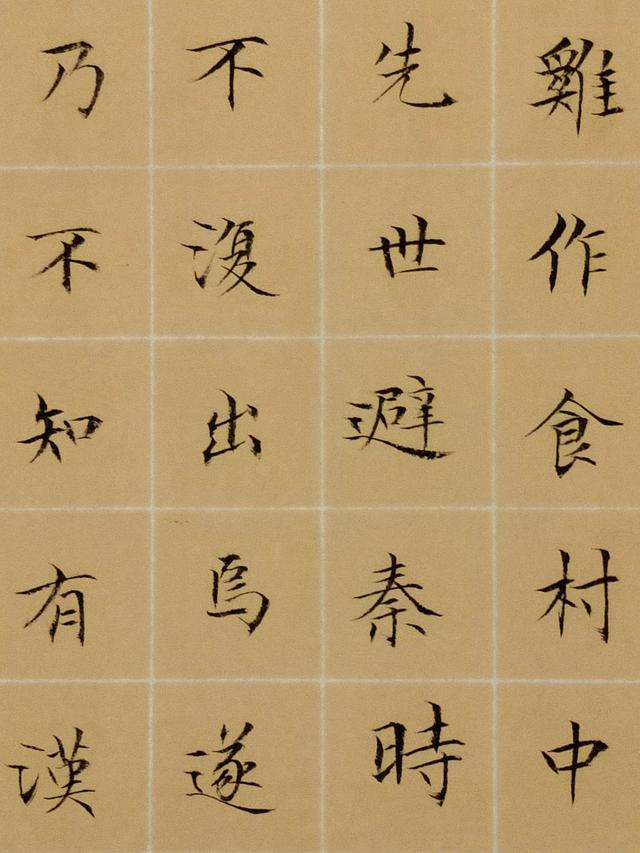 雞作食村中
先世避秦時
不復出焉遂
乃不知有漢